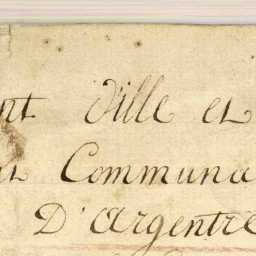 nt Ville et
Communa
D'Argentre